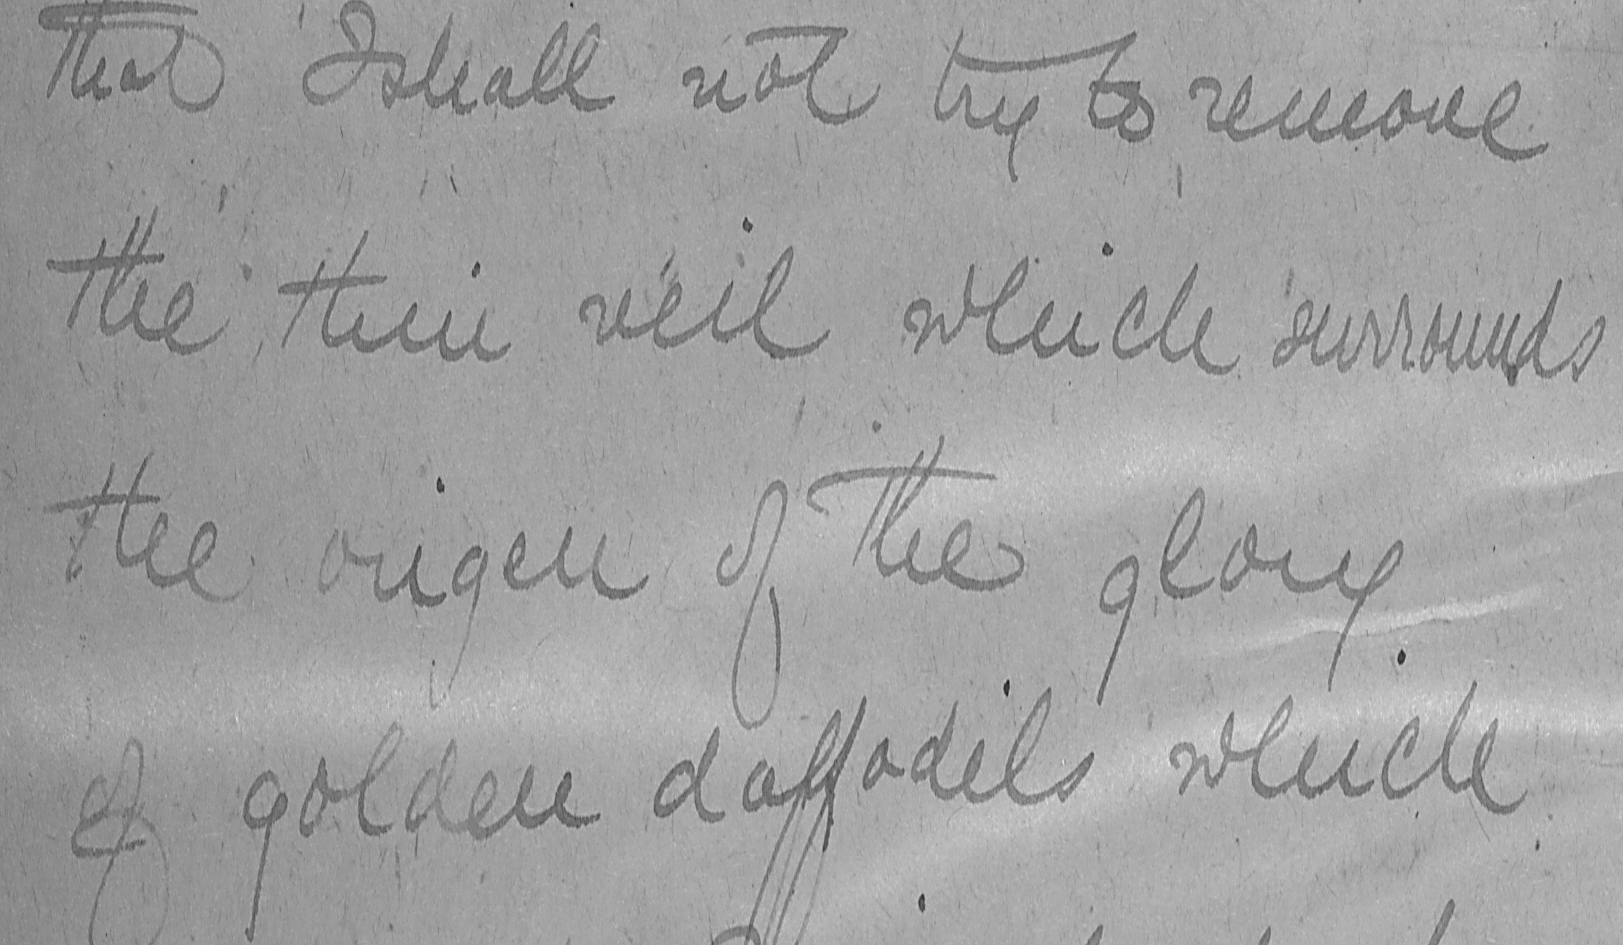 that I shall not try to remove
the thin veil which surrounds
the origen of the glory
of golden daffodils which